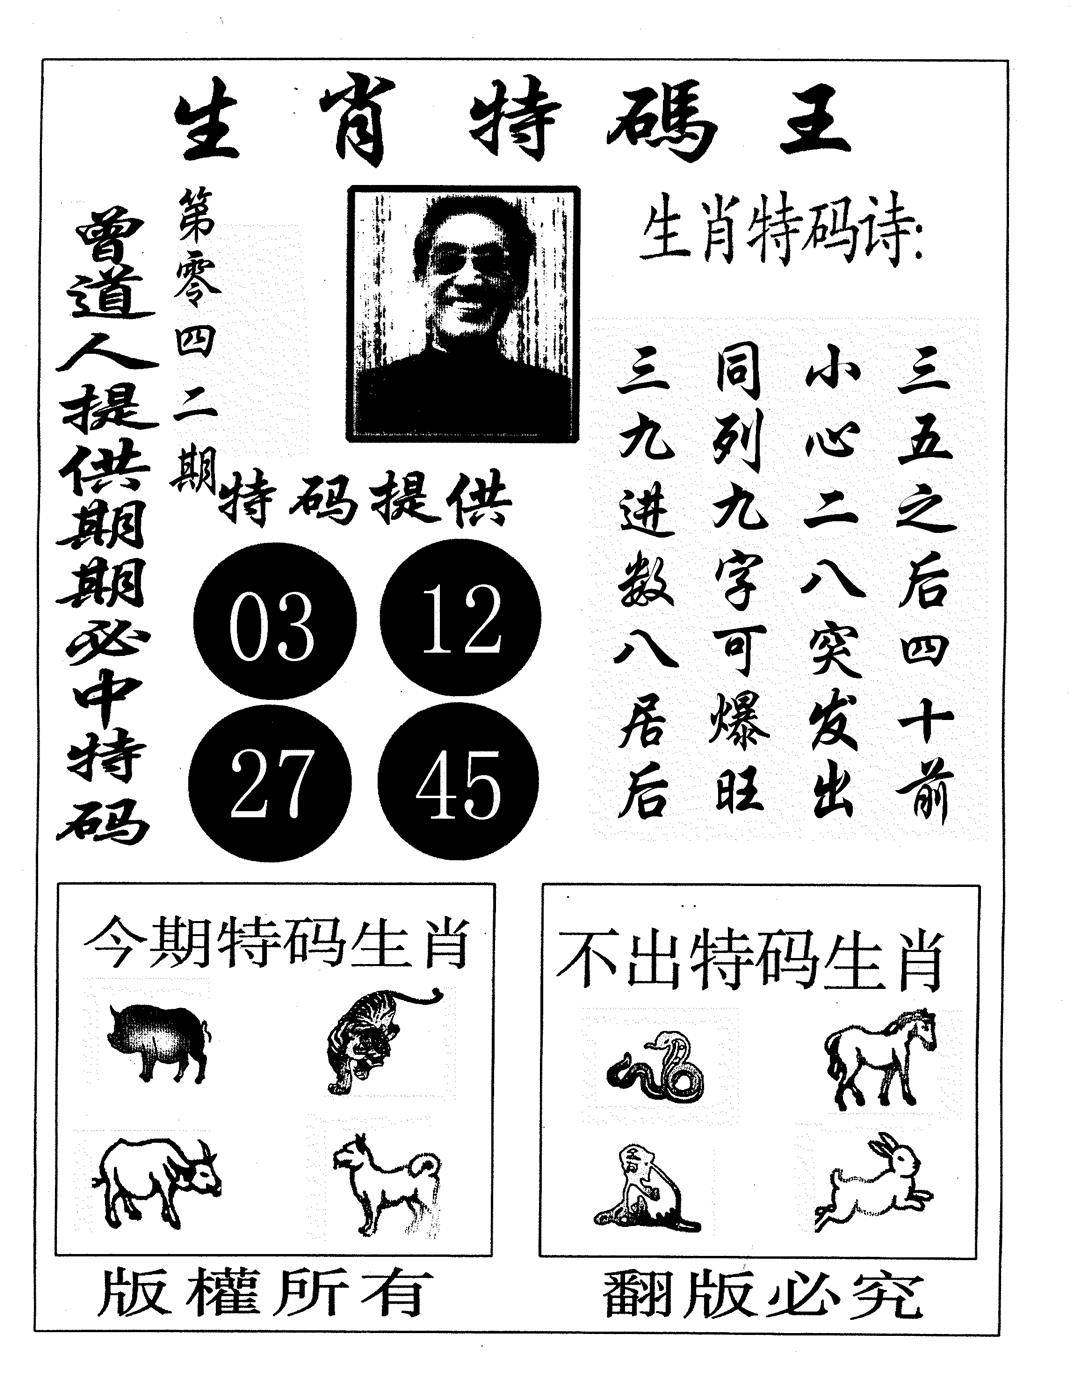 生肖特碼王
曾道人提供期期必中特码
第零四二期
特码提供
03 12
27 45
生肖特码诗:
三五之后四十前
小心二八突发出
同列九字可爆旺
三九进数八居后
今期特码生肖
不出特码生肖
版權所有
翻版必究